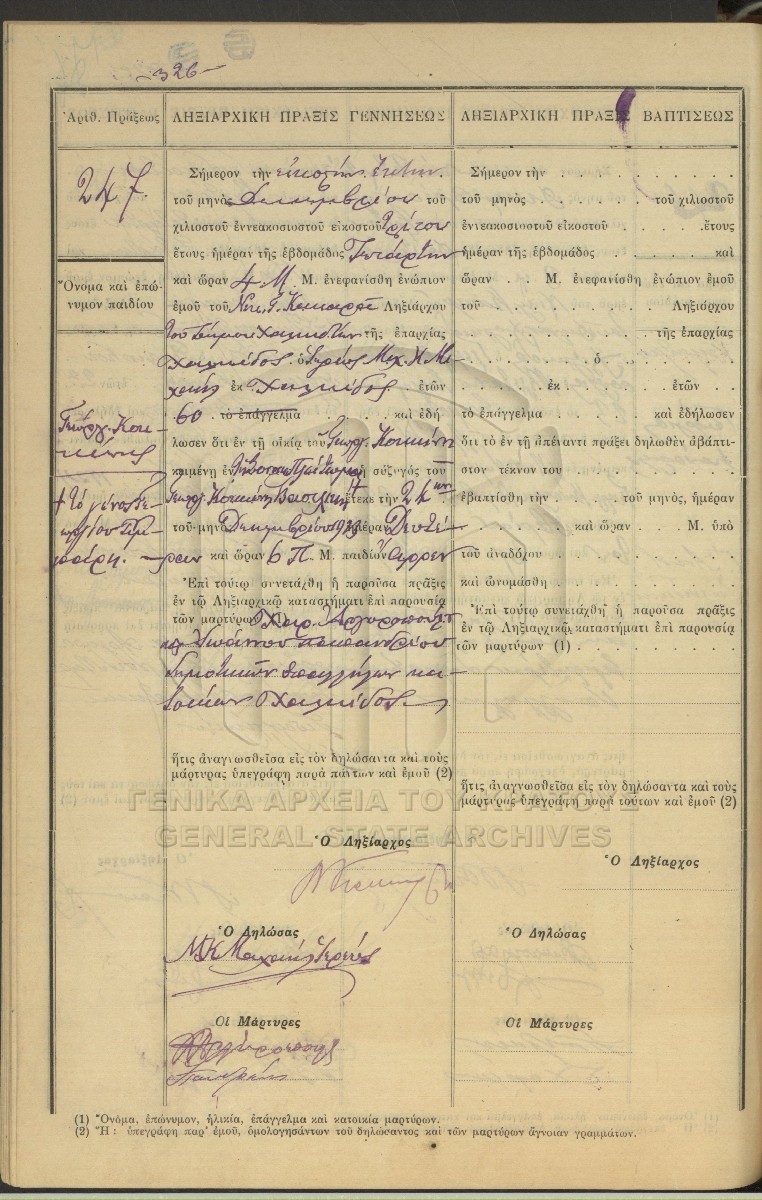 -326-
Ἀριθ. Πράξεως
247.
Ὄνομα καὶ ἐπώ-
νυμον παιδίου
Γεώργ. Κοκ-
κίνης
+ τὸ γένος Γε-
ωργίου
ΛΗΞΙΑΡΧΙΚΗ ΠΡΑΞΙΣ ΓΕΝΝΗΣΕΩΣ
Σήμερον τὴν εἰκοστὴν ἕκτην
τοῦ μηνὸς Δεκεμβρίου τοῦ
χιλιοστοῦ ἐννεακοσιοστοῦ εἰκοστοῦ τρίτου
ἔτους ἡμέραν τῆς ἑβδομάδος Τετάρτην
καὶ ὥραν 4 Μ. Μ. ἐνεφανίσθη ἐνώπιον
ἐμοῦ τοῦ Νικ. Γ. Ληξιάρχου
τοῦ Δήμου Χαλκιδέων τῆς ἐπαρχίας
Χαλκίδος ὁ Ἱερεὺς Μιχ. Κ. Μα-
χαιρᾶς ἐκ Χαλκίδος ἐτῶν
60 . τὸ ἐπάγγελμα . . . . . καὶ ἐδή
λωσεν ὅτι ἐν τῇ οἰκίᾳ τοῦ Γεωργ. Κοκκίνη
κειμένῃ ἐν ἡ σύζυγός του
Γεωργ. Κοκκίνη Βασιλικὴ + ἔτεκε τὴν 24ην
τοῦ μηνὸς Δεκεμβρίου 1923 ἡμέραν Δευτέ-
ραν καὶ ὥραν 6 Π. Μ. παιδίον ἄρρεν
Ἐπὶ τούτῳ συνετάχθη ἡ παροῦσα πρᾶξις
ἐν τῷ Ληξιαρχικῷ καταστήματι ἐπὶ παρουσίᾳ
τῶν μαρτύρων Χαρ. Ἀργυροπούλου
καὶ Ἰωάννου Παπανδρέου
δημοτικῶν ὑπαλλήλων κα-
τοίκων Χαλκίδος
ἥτις ἀναγνωσθεῖσα εἰς τὸν δηλώσαντα καὶ τοὺς
μάρτυρας ὑπεγράφη παρὰ πάντων καὶ ἐμοῦ (2)
Ὁ Ληξίαρχος
Ὁ Δηλώσας
Οἱ Μάρτυρες
ΛΗΞΙΑΡΧΙΚΗ ΠΡΑΞΙΣ ΒΑΠΤΙΣΕΩΣ
Σήμερον τὴν . . . . . . . . . .
τοῦ μηνὸς . . . . . . . τοῦ χιλιοστοῦ
ἐννεακοσιοστοῦ εἰκοστοῦ . . . . . ἔτους
ἡμέραν τῆς ἑβδομάδος . . . . . . καὶ
ὥραν . . Μ. ἐνεφανίσθη ἐνώπιον ἐμοῦ
τοῦ . . . . . . . . . Ληξιάρχου
. . . . . . . . . τῆς ἐπαρχίας
. . . . . . . . ὁ . . . . . . .
. . . . . . ἐκ . . . . . . ἐτῶν . .
τὸ ἐπάγγελμα . . . . . καὶ ἐδήλωσεν
ὅτι τὸ ἐν τῇ ἀπέναντι πράξει δηλωθὲν ἀβάπτι-
στον τέκνον του . . . . . . . . .
ἐβαπτίσθη τὴν . . . . τοῦ μηνός, ἡμέραν
. . . . . . . καὶ ὥραν . . Μ. ὑπὸ
τοῦ ἀναδόχου . . . . . . . . . .
καὶ ὠνομάσθη . . . . . . . . . .
Ἐπὶ τούτῳ συνετάχθη ἡ παροῦσα πρᾶξις
ἐν τῷ Ληξιαρχικῷ καταστήματι ἐπὶ παρουσίᾳ
τῶν μαρτύρων (1) . . . . . . . . .
ἥτις ἀναγνωσθεῖσα εἰς τὸν δηλώσαντα καὶ τοὺς
μάρτυρας ὑπεγράφη παρὰ τούτων καὶ ἐμοῦ (2)
Ὁ Ληξίαρχος
Ὁ Δηλώσας
Οἱ Μάρτυρες
ΓΕΝΙΚΑ ΑΡΧΕΙΑ ΤΟΥ ΚΡΑΤΟΥΣ
GENERAL STATE ARCHIVES
(1) Ὄνομα, ἐπώνυμον, ἡλικία, ἐπάγγελμα καὶ κατοικία μαρτύρων.
(2) Ἤ: ὑπεγράφη παρ' ἐμοῦ, ὁμολογησάντων τοῦ δηλώσαντος καὶ τῶν μαρτύρων ἄγνοιαν γραμμάτων.